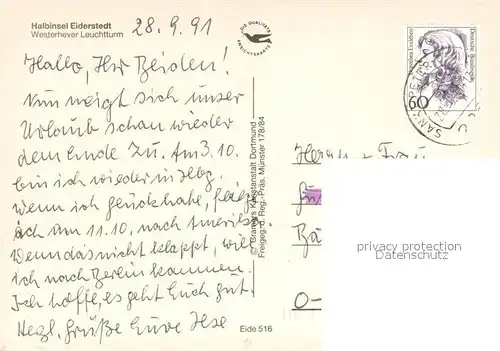 Halbinsel Eiderstedt
Westerhever Leuchtturm
28.9.91
DIE QUALITÄTS
ANSICHTSKARTE
Hallo, Ihr Beiden!
Nun neigt sich unser
Urlaub schon wieder
dem Ende zu. Am 3.10.
bin ich wieder in Hbg.
Wenn ich Glück habe, fliege
ich am 11.10. nach Amerika.
Wenn das nicht klappt, will
ich nach Berlin kommen.
Ich hoffe, es geht Euch gut.
Herzl. Grüße Eure Ilse
Kunstanstalt Dortmund
Freigeg. d. Reg.-Präs. Münster 178/84
Eide 516
Deutsche Bundespost
60
SANKT PETER
Herrn + Frau
Bä
O-
privacy protection
Datenschutz